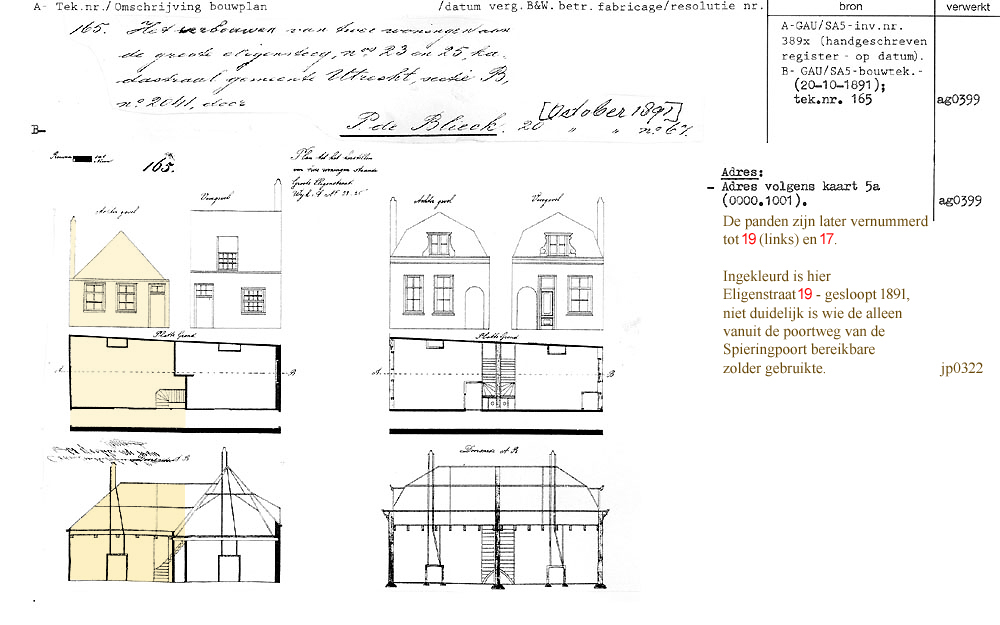 A- Tek.nr./Omschrijving bouwplan /datum verg.B&W.betr.fabricage/resolutie nr. bron verwerkt
165. Het verbouwen van twee woningen aan
de groote eligensteeg, nos 23 en 25, ka-
dastraal gemeente Utrecht, sectie B,
no 2041, door
[October 1891]
P. de Blieck. 20 " " no 67.
A-GAU/SA5-inv.nr.
389x (handgeschreven
register - op datum).
B- GAU/SA5-bouwtek.-
(20-10-1891);
tek.nr. 165 ag0399
B-
165.
Plan tot het herstellen
van twee woningen staande
Groote Eligenstraat
Wyk F No 23-25
Achter gevel Voorgevel
Achter gevel Voorgevel
Platte Grond
A B
Platte Grond
A B
Doorsnede A B
Doorsnede A B
Adres:
- Adres volgens kaart 5a
(0000.1001). ag0399
De panden zijn later vernummerd
tot 19 (links) en 17.
Ingekleurd is hier
Eligenstraat 19 - gesloopt 1891,
niet duidelijk is wie de alleen
vanuit de poortweg van de
Spieringpoort bereikbare
zolder gebruikte. jp0322